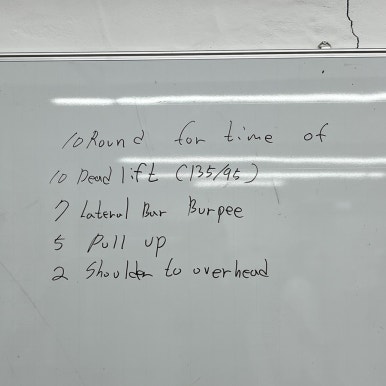 10 Round for time of
10 Dead lift (135/95)
7 Lateral Bar Burpee
5 Pull up
2 Shoulder to overhead